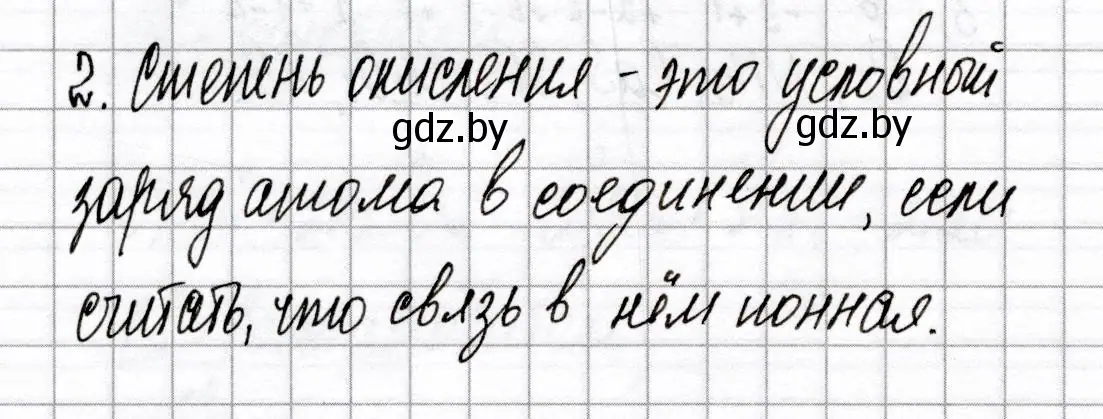 2. Степень окисления - это условный
gdz.by gdz.by
заряд атома в соединении, если
считать, что связь в нём ионная.